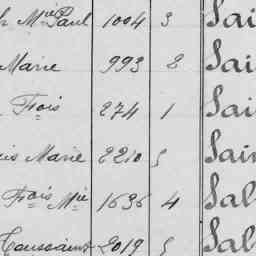 h Mie Paul 1004 3 Sai
Marie 993 8 Sai
Frois 274 1 Sai
is Marie 2210 5 Sain
Frois Mie 1636 4 Sal
Toussaint 2019 5 Sal